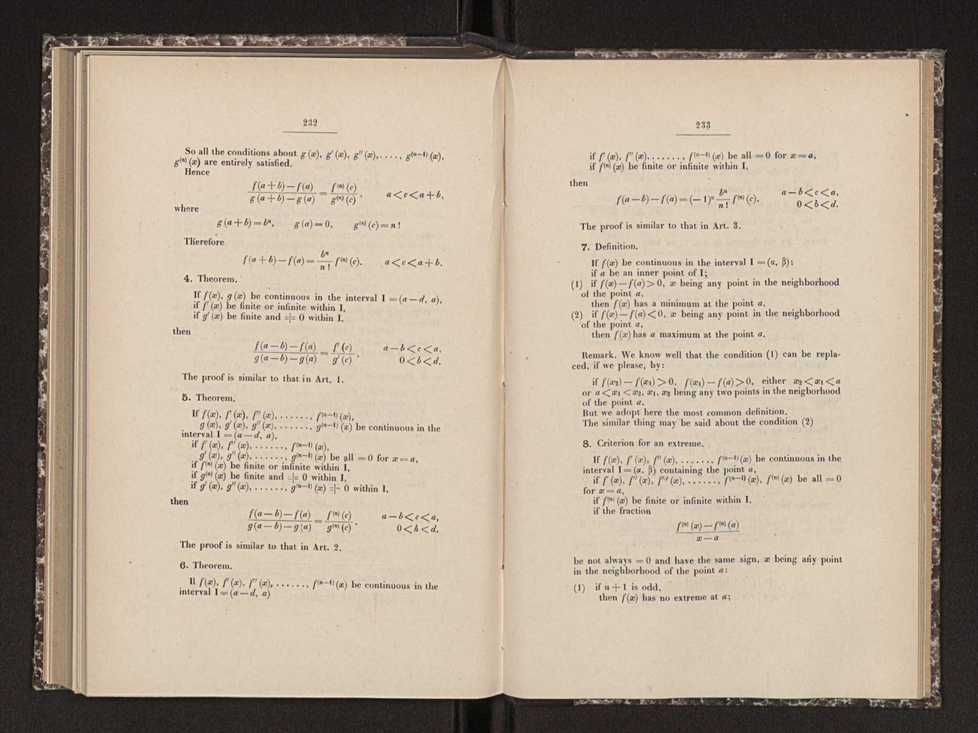 232
So all the conditions about g (x), g′ (x), g″ (x),. . . ., g⁽ⁿ⁻¹⁾ (x),
g⁽ⁿ⁾ (x) are entirely satisfied.
Hence
f(a + b) — f(a) / g (a + b) — g (a) = f⁽ⁿ⁾ (c) / g⁽ⁿ⁾ (c) , a < c < a + b,
where
g (a + b) = bⁿ, g (a) = 0, g⁽ⁿ⁾ (c) = n !
Therefore
f(a + b) — f(a) = bⁿ / n ! f⁽ⁿ⁾ (c). a < c < a + b.
4. Theorem.
If f(x), g (x) be continuous in the interval I = (a — d, a),
if f′ (x) be finite or infinite within I,
if g′ (x) be finite and ≠ 0 within I,
then
f(a — b) — f(a) / g(a — b) — g(a) = f′ (c) / g′ (c) , a — b < c < a,
0 < b < d.
The proof is similar to that in Art. 1.
5. Theorem.
If f(x), f′ (x), f″ (x), . . . . . . , f⁽ⁿ⁻¹⁾ (x),
g (x), g′ (x), g″ (x), . . . . . . , g⁽ⁿ⁻¹⁾ (x) be continuous in the
interval I = (a — d, a),
if f′ (x), f″ (x), . . . . . . , f⁽ⁿ⁻¹⁾ (x),
g′ (x), g″ (x), . . . . . . , g⁽ⁿ⁻¹⁾ (x) be all = 0 for x = a,
if f⁽ⁿ⁾ (x) be finite or infinite within I,
if g⁽ⁿ⁾ (x) be finite and ≠ 0 within I,
if g′ (x), g″ (x), . . . . . . , g⁽ⁿ⁻¹⁾ (x) ≠ 0 within I,
then
f(a — b) — f(a) / g(a — b) — g (a) = f⁽ⁿ⁾ (c) / g⁽ⁿ⁾ (c) , a — b < c < a,
0 < b < d.
The proof is similar to that in Art. 2.
6. Theorem.
If f(x), f′ (x), f″ (x), . . . . . . , f⁽ⁿ⁻¹⁾ (x) be continuous in the
interval I = (a — d, a)
233
if f′ (x), f″ (x), . . . . . . , f⁽ⁿ⁻¹⁾ (x) be all = 0 for x = a,
if f⁽ⁿ⁾ (x) be finite or infinite within I,
then
f(a — b) — f(a) = (— 1)ⁿ bⁿ / n ! f⁽ⁿ⁾ (c). a — b < c < a,
0 < b < d.
The proof is similar to that in Art. 3.
7. Definition.
If f(x) be continuous in the interval I = (α, β);
if a be an inner point of I;
(1) if f(x) — f(a) > 0, x being any point in the neighborhood
of the point a,
then f(x) has a minimum at the point a.
(2) if f(x) — f(a) < 0, x being any point in the neighborhood
of the point a,
then f(x) has a maximum at the point a.
Remark. We know well that the condition (1) can be repla-
ced, if we please, by:
if f(x₂) — f(x₁) > 0, f(x₁) — f(a) > 0, either x₂ < x₁ < a
or a < x₁ < x₂, x₁, x₂ being any two points in the neigborhood
of the point a.
But we adopt here the most common definition.
The similar thing may be said about the condition (2)
8. Criterion for an extreme.
If f(x), f′ (x), f″ (x), . . . . . . , f⁽ⁿ⁻¹⁾ (x) be continuous in the
interval I = (α, β) containing the point a,
if f′ (x), f″ (x), f‴ (x), . . . . . . , f⁽ⁿ⁻¹⁾ (x), f⁽ⁿ⁾ (x) be all = 0
for x = a,
if f⁽ⁿ⁾ (x) be finite or infinite within I.
if the fraction
f⁽ⁿ⁾ (x) — f⁽ⁿ⁾ (a) / x — a
be not always = 0 and have the same sign, x being any point
in the neighborhood of the point a:
(1) if n + 1 is odd,
then f(x) has no extreme at a;